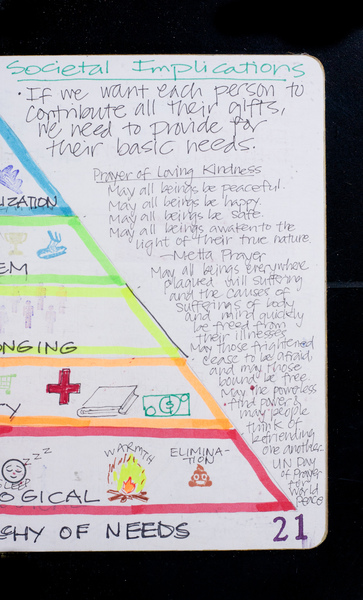 Societal Implications
· If we want each person to
contribute all their gifts,
we need to provide for
their basic needs.
Prayer of Loving Kindness
May all beings be peaceful.
May all beings be happy.
May all beings be safe.
May all beings awaken to the
light of their true nature
—Metta Prayer
May all beings everywhere
plagued with suffering
and the causes of
sufferings of body
and mind quickly
be freed from
their illnesses.
May those frightened
cease to be afraid,
and may those
bound be free.
May the powerless
find power &
may people
think of
befriending
one another.
UN Day
of Prayer
for
World
Peace
IZATION
EM
NGING
TY
$
WARMTH
ELIMINA-
TION
ZZZ
SLEEP
OGICAL
CHY OF NEEDS
21